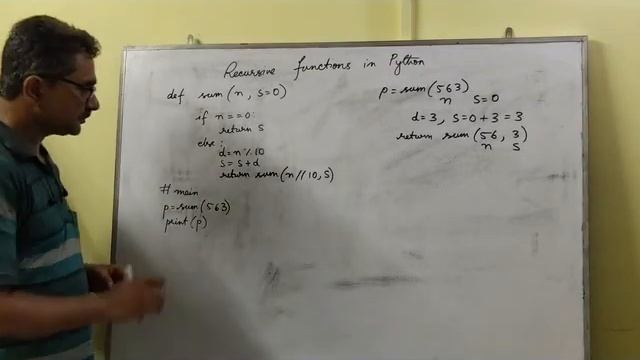 Recursive functions in Python
def sum(n, s=0)
if n==0:
return s
else:
d=n%10
s=s+d
return sum(n//10,s)
# main
p=sum(563)
print(p)
p=sum(563)
n s=0
d=3, s=0+3=3
return sum(56, 3)
n s